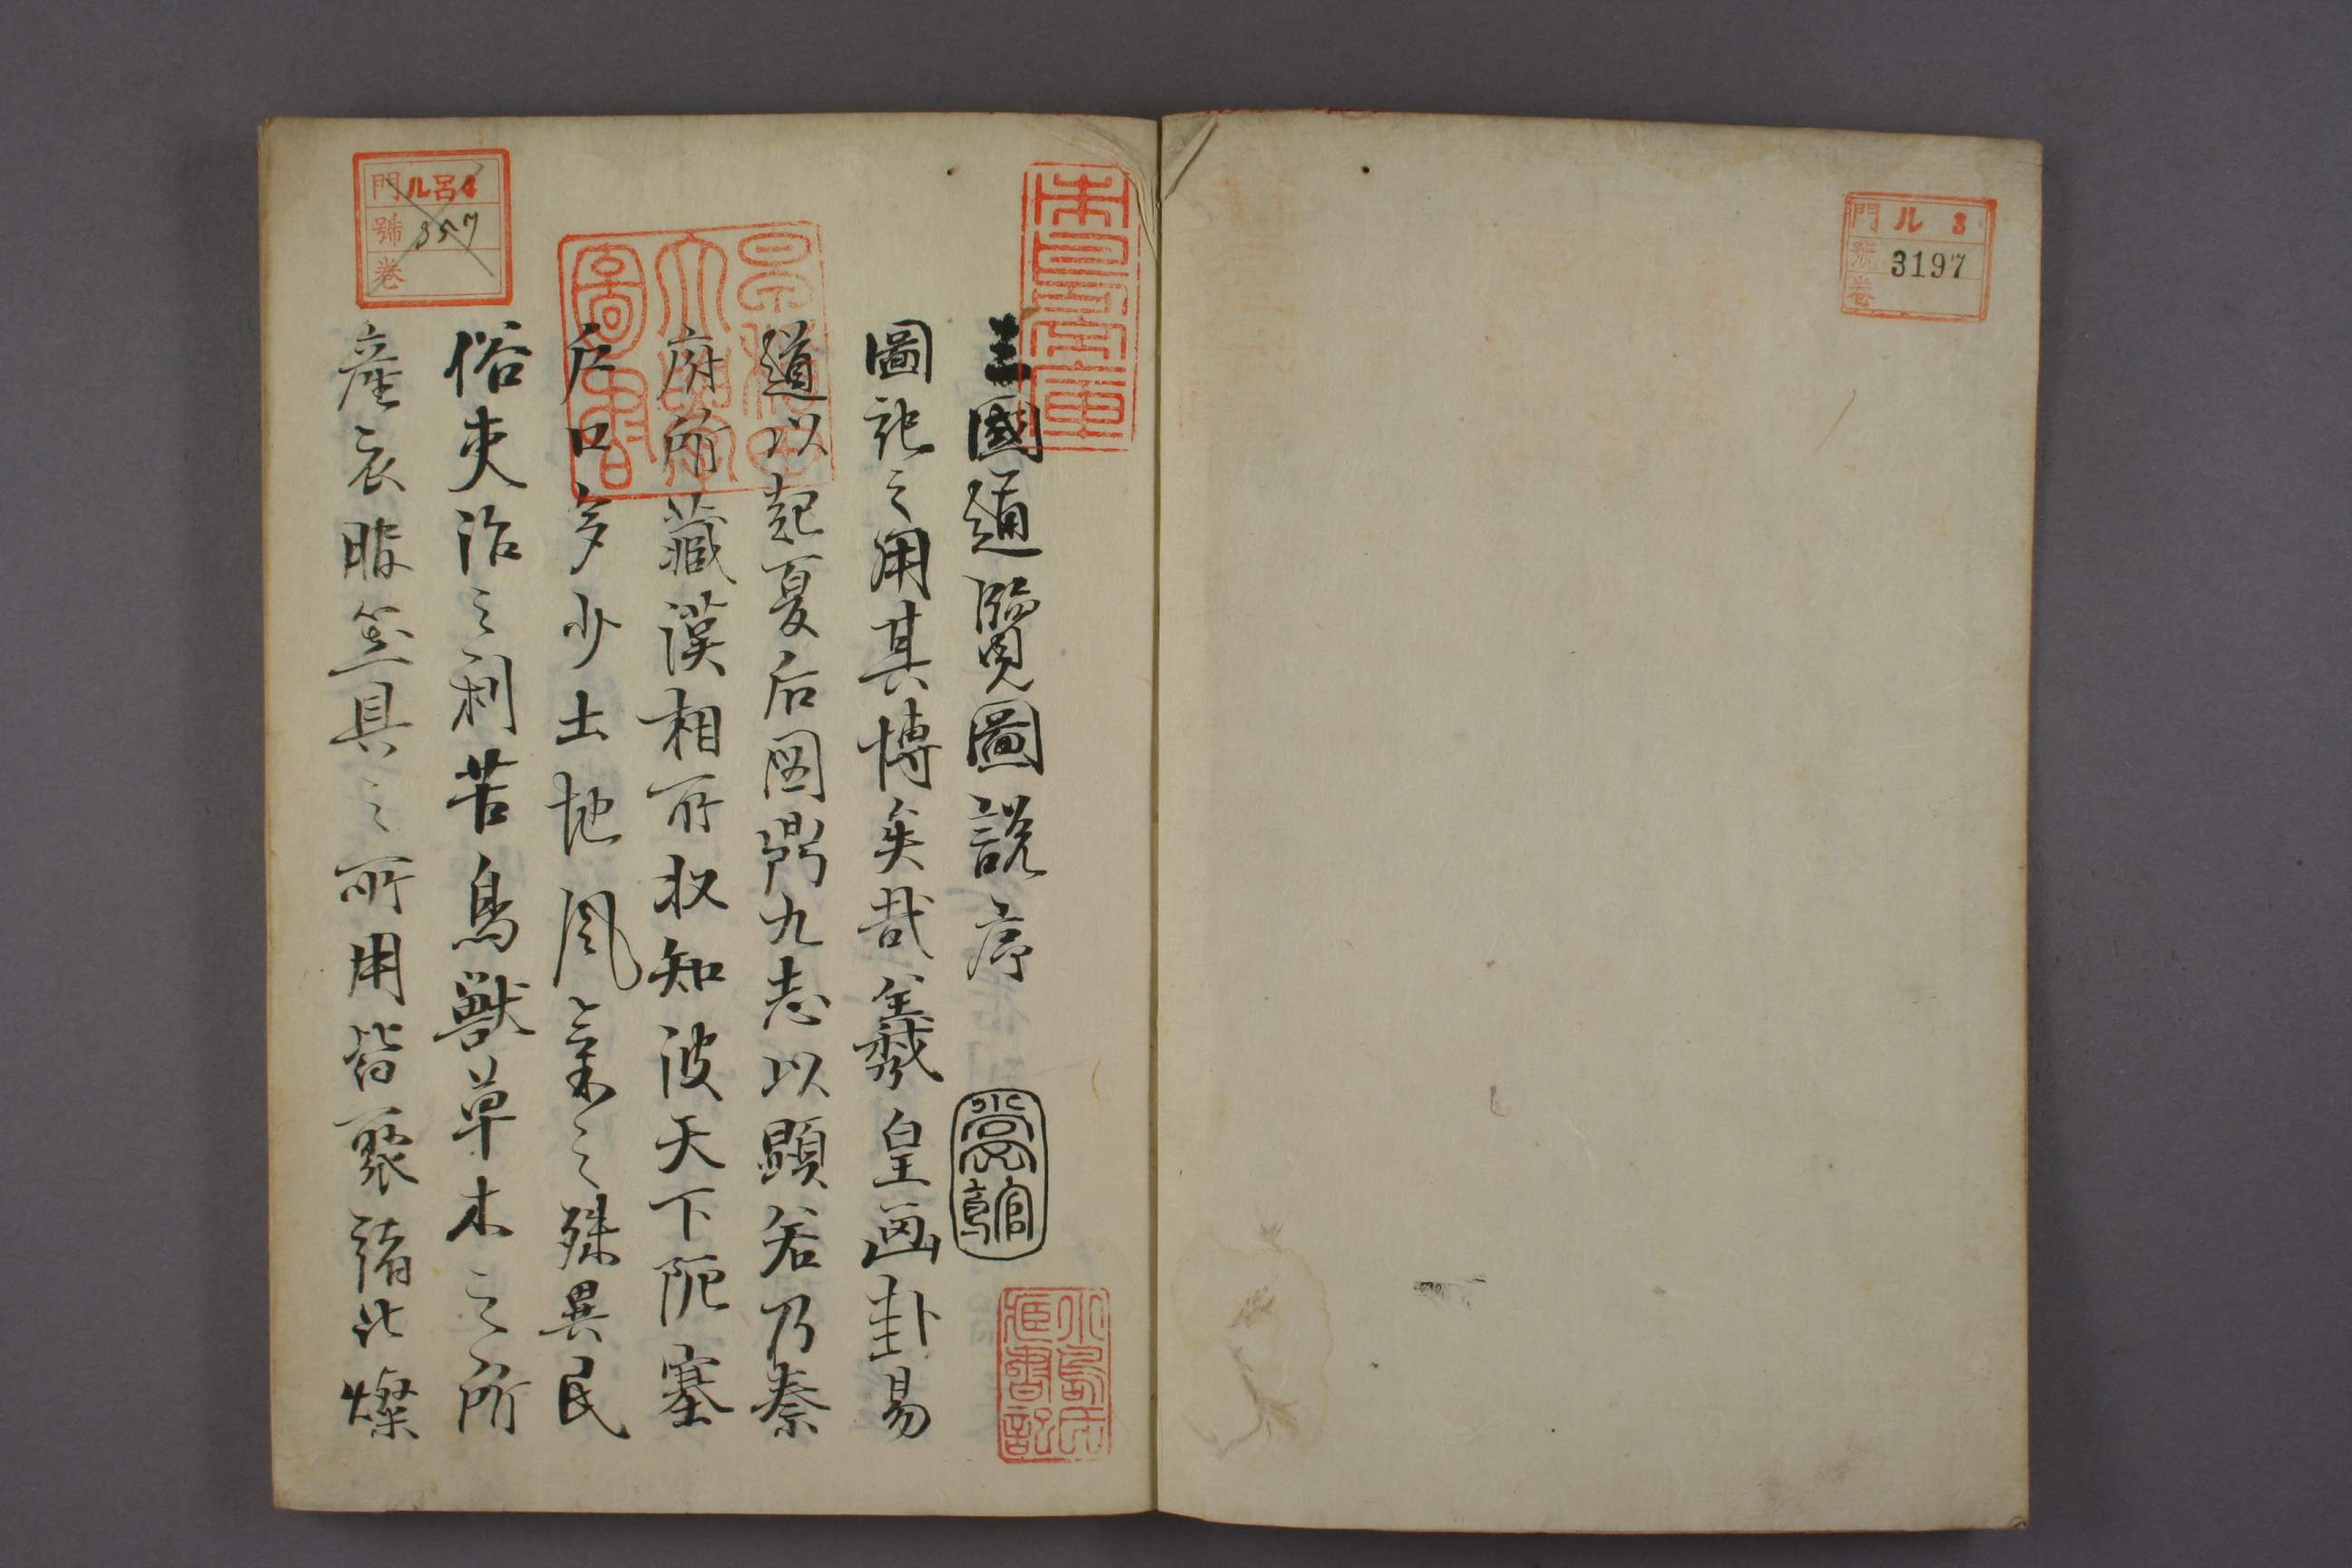 門 ル 3
號 3197
卷
三國通覽圖說序
圖記之用其博矣哉羲皇画卦易
道以起夏后図鼎九志以顕若乃秦
府所藏漢相所収知彼天下阨塞
户口多少土地風氣之殊異民
俗吏治之利苦鳥獣草木之所
産衣服噐具之所用皆聚諸此燦
小島氏
藏書記
圖書
門 ル呂4
號 357
卷